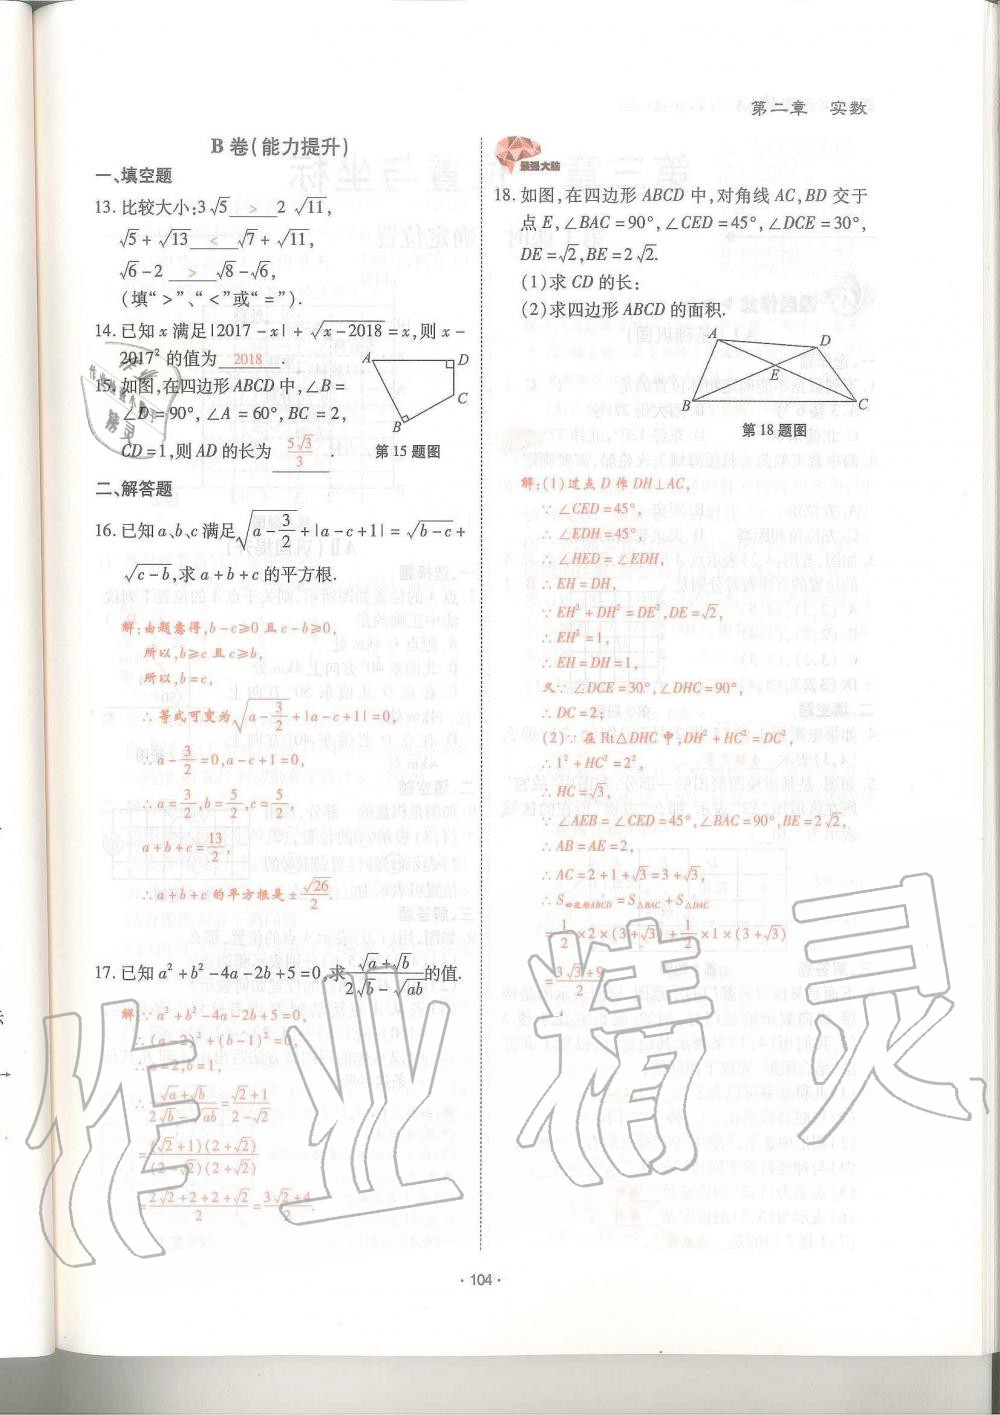 第二章 实数
B卷(能力提升)
一、填空题
13.比较大小:3√5 > 2√11,
√5+√13 < √7+√11,
√6-2 > √8-√6,
(填“>”、“<”或“=”).
14.已知x满足|2017-x|+√(x-2018)=x,则x-
2017²的值为 2018 .
15.如图,在四边形ABCD中,∠B=
∠D=90°,∠A=60°,BC=2,
CD=1,则AD的长为 5√3/3 .
A
D
C
B
第15题图
二、解答题
16.已知a、b、c满足√(a-3/2)+|a-c+1|=√(b-c)+
√(c-b),求a+b+c的平方根.
解:由题意得,b-c≥0且c-b≥0,
所以,b≥c且c≥b,
所以,b=c,
∴等式可变为√(a-3/2)+|a-c+1|=0,
∴a-3/2=0,a-c+1=0,
∴a=3/2,b=5/2,c=5/2,
a+b+c=13/2,
∴a+b+c的平方根是±√26/2.
17.已知a²+b²-4a-2b+5=0,求(√a+√b)/(2√b-√ab)的值.
解:∵a²+b²-4a-2b+5=0,
∴(a-2)²+(b-1)²=0,
∴a=2,b=1,
∴(√a+√b)/(2√b-√ab)=(√2+1)/(2-√2)
=(√2+1)(2+√2)/(2-√2)(2+√2)
=(2√2+2+2+√2)/2=(3√2+4)/2.
最强大脑
18.如图,在四边形ABCD中,对角线AC,BD交于
点E,∠BAC=90°,∠CED=45°,∠DCE=30°,
DE=√2,BE=2√2.
(1)求CD的长:
(2)求四边形ABCD的面积.
A
D
E
B
C
第18题图
解:(1)过点D作DH⊥AC,
∵∠CED=45°,
∴∠EDH=45°,
∴∠HED=∠EDH,
∴EH=DH,
∵EH²+DH²=DE²,DE=√2,
∴EH²=1,
∴EH=DH=1,
又∵∠DCE=30°,∠DHC=90°,
∴DC=2;
(2)∵在Rt△DHC中,DH²+HC²=DC²,
∴1²+HC²=2²,
∴HC=√3,
∵∠AEB=∠CED=45°,∠BAC=90°,BE=2√2,
∴AB=AE=2,
∴AC=2+1+√3=3+√3,
∴S四边形ABCD=S△BAC+S△DAC
=1/2×2×(3+√3)+1/2×1×(3+√3)
=(3√3+9)/2
·104·
作业精灵